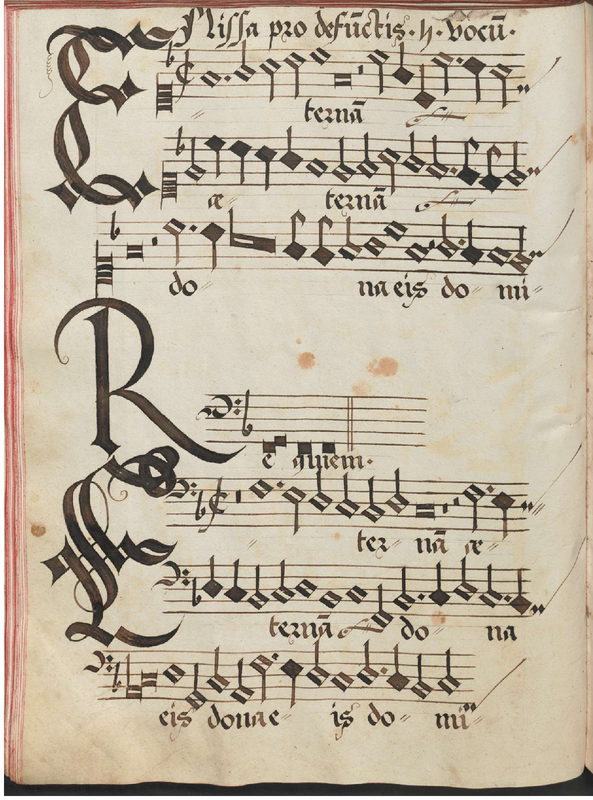 Missa pro defūctis · 4 · vocū ·
E ternā
æ ternā
do na eis do mi
R
e quiem ·
E ter nā æ
ternā do na
eis dona e is do mi